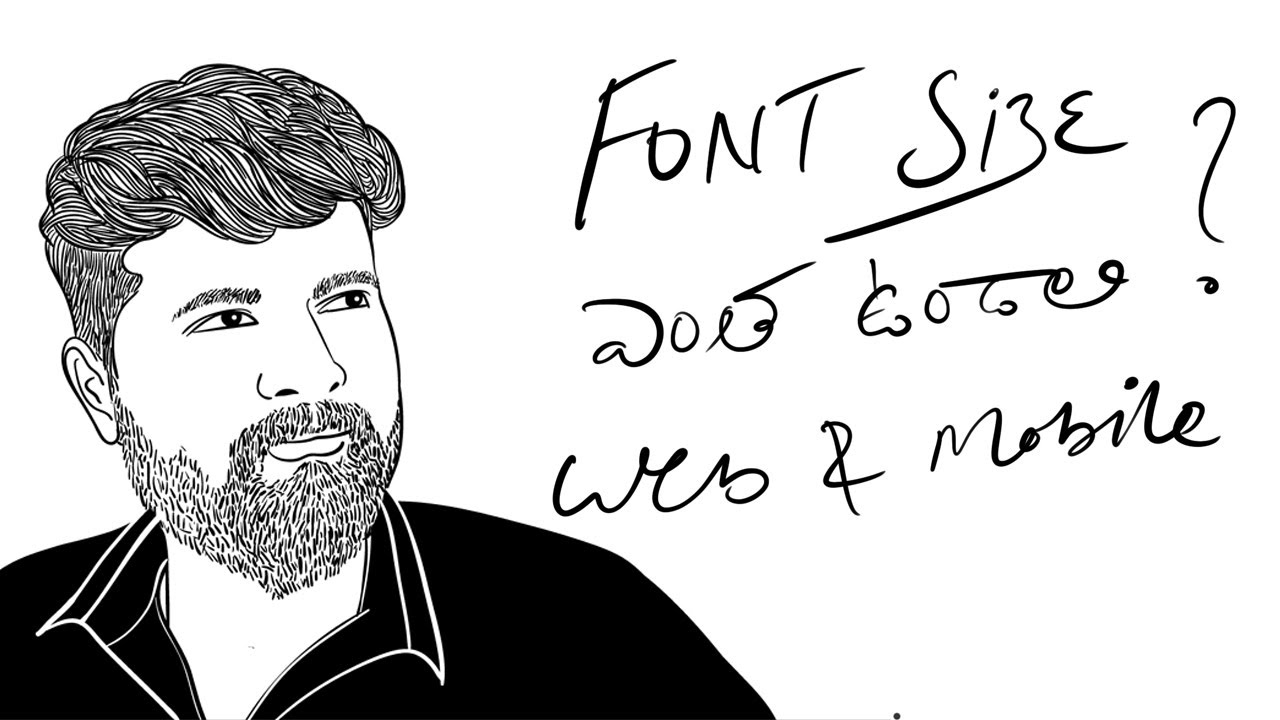 FONT SIZE ?
ఎంత ఉండాలి
Web & Mobile